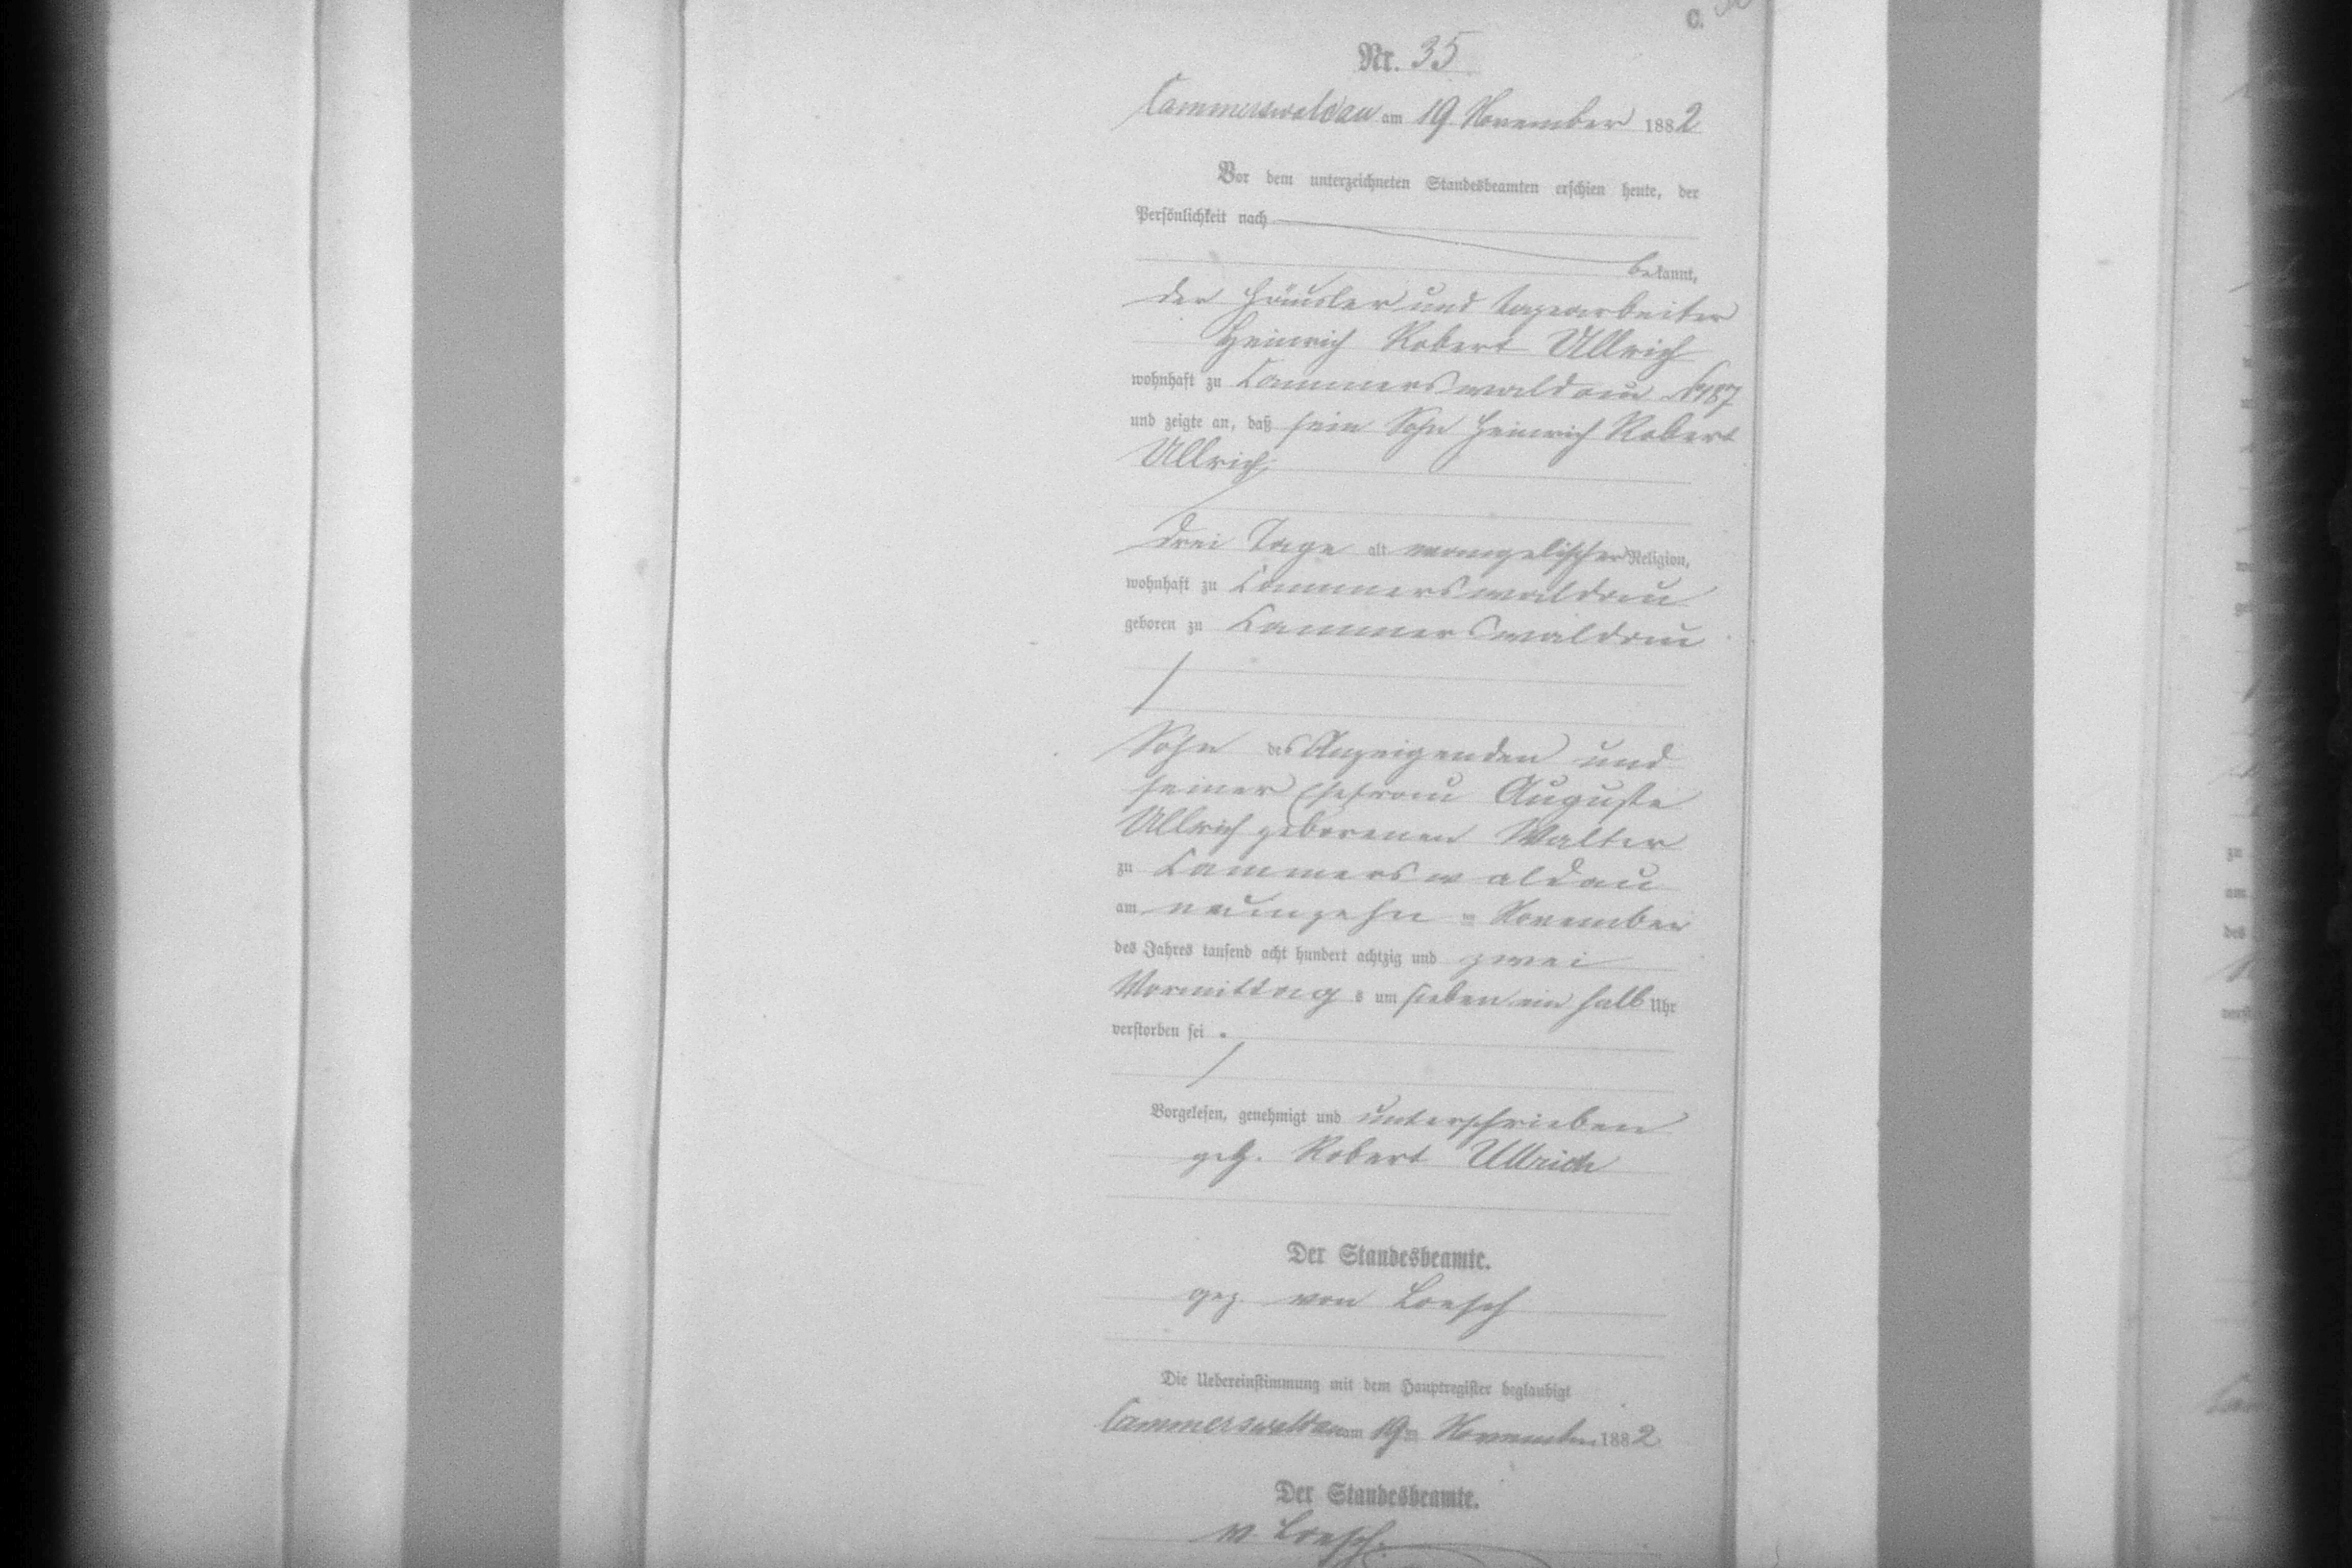 C.
Nr. 35
Cammerswaldau am 19 November 1882
Vor dem unterzeichneten Standesbeamten erschien heute, der
Persönlichkeit nach
bekannt,
der Häusler und Tagearbeiter
Heinrich Robert Ullrich
wohnhaft zu Cammerswaldau No 187
und zeigte an, daß sein Sohn Heinrich Robert
Ullrich,
drei Tage alt evangelischer Religion,
wohnhaft zu Cammerswaldau
geboren zu Cammerswaldau
Sohn des Anzeigenden und
seiner Ehefrau Auguste
Ullrich geborenen Walter
zu Cammerswaldau
am neunzehn ten November
des Jahres tausend acht hundert achtzig und zwei
Vormittag s um sieben ein halb Uhr
verstorben sei.
Vorgelesen, genehmigt und unterschrieben
gez. Robert Ullrich
Der Standesbeamte.
gez. von Loesch
Die Uebereinstimmung mit dem Hauptregister beglaubigt
Cammerswaldau am 19ten November 1882
Der Standesbeamte.
v. Loesch.